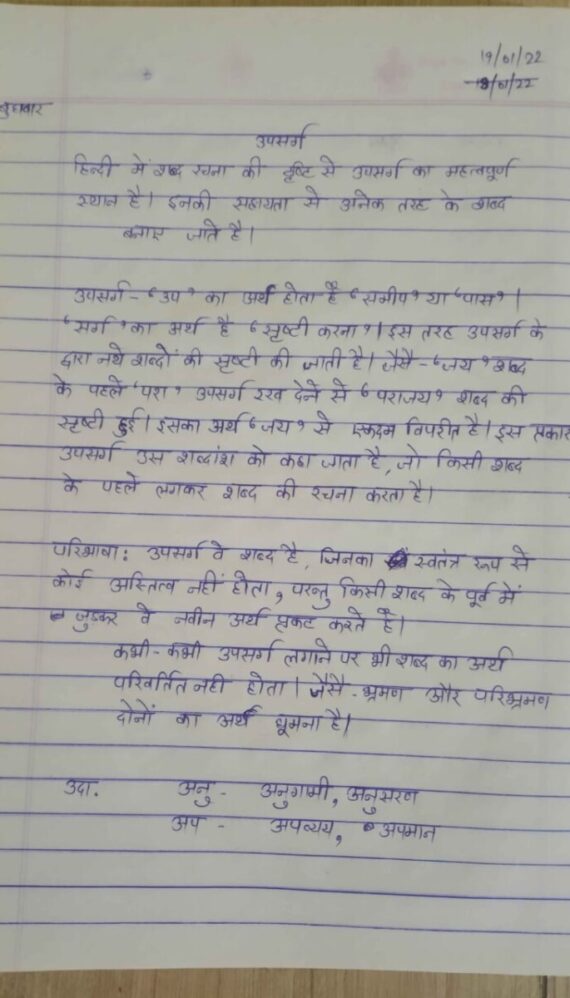 19/01/22
18/01/22
बुधवार
उपसर्ग
हिन्दी में शब्द रचना की दृष्टि से उपसर्ग का महत्वपूर्ण
स्थान है। इनकी सहायता से अनेक तरह के शब्द
बनाए जाते है।
उपसर्ग - 'उप' का अर्थ होता है 'समीप' या 'पास'।
'सर्ग' का अर्थ है 'सृष्टी करना'। इस तरह उपसर्ग के
द्वारा नये शब्दों की सृष्टी की जाती है। जैसे - 'जय' शब्द
के पहले 'परा' उपसर्ग रख देने से 'पराजय' शब्द की
सृष्टी हुई। इसका अर्थ 'जय' से एकदम विपरीत है। इस प्रकार
उपसर्ग उस शब्दांश को कहा जाता है, जो किसी शब्द
के पहले लगकर शब्द की रचना करता है।
परिभाषा: उपसर्ग वे शब्द है, जिनका स्वतंत्र रूप से
कोई अस्तित्व नहीं होता, परन्तु किसी शब्द के पूर्व में
जुडकर वे नवीन अर्थ प्रकट करते हैं।
कभी-कभी उपसर्ग लगाने पर भी शब्द का अर्थ
परिवर्तित नही होता। जैसे - भ्रमण और परिभ्रमण
दोनों का अर्थ घूमना है।
उदा. अनु - अनुगामी, अनुसरण
अप - अपव्यय, अपमान